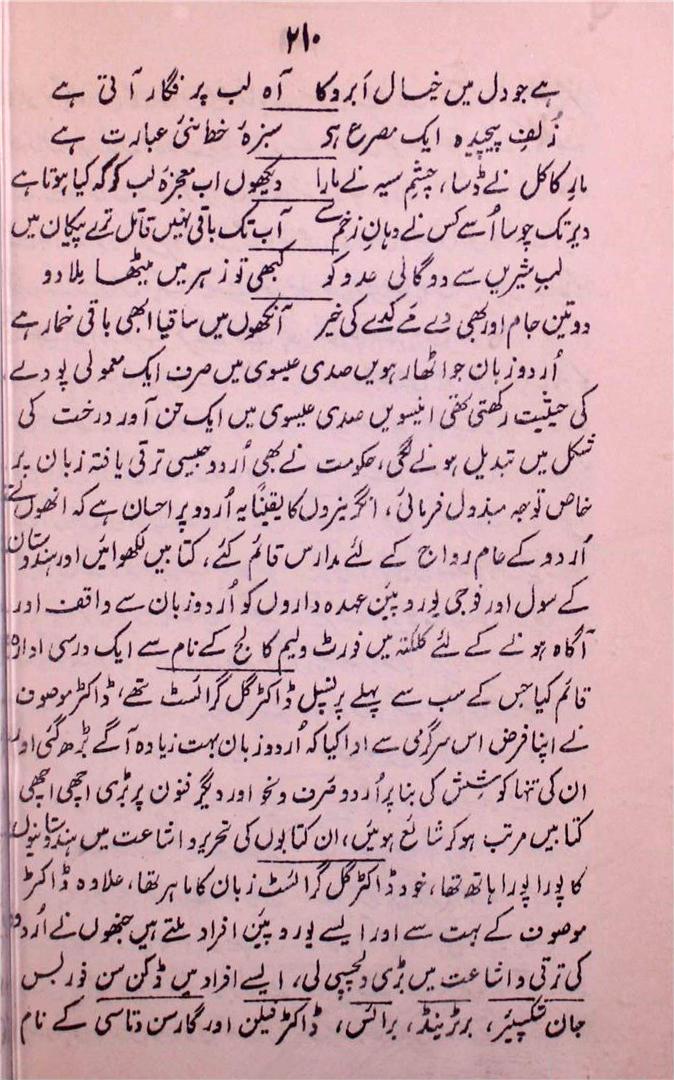 ۲۱۰
ہے جو دل میں خیال اَبرو کا آہ لب پر فگار آتی ہے
زُلفِ پیچیدہ ایک مصرع ہو سبزۂ خط نئی عبارت ہے
مارِ کاکل نے ڈسا، چشمِ سیہ نے مارا دیکھوں اب معجزۂ لب کو کہ کیا ہوتا ہے
دیر تک چوسا اُسے کس نے دہانِ زخم سے آب تک باقی نہیں قاتل ترے پیکان میں
لبِ شیریں سے دو گالی عدو کو کبھی تو زہر میں میٹھا ملا دو
دو تین جام اور بھی دے مے کدے کی خیر آنکھوں میں ساقیا ابھی باقی خمار ہے
اُردو زبان جو اٹھارہویں صدی عیسوی میں صرف ایک معمولی پودے
کی حیثیت رکھتی تھی انیسویں صدی عیسوی میں ایک تن آور درخت کی
شکل میں تبدیل ہونے لگی، حکومت نے بھی اُردو جیسی ترقی یافتہ زبان پر
خاص توجہ مبذول فرمائی، انگریزوں کا یقیناً یہ اُردو پر احسان ہے کہ انھوں نے
اُردو کے عام رواج کے لئے مدارس قائم کئے، کتابیں لکھوائیں اور ہندوستان
کے سول اور فوجی یوروپین عہدہ داروں کو اُردو زبان سے واقف اور
آگاہ ہونے کے لئے کلکتہ میں فورٹ ولیم کالج کے نام سے ایک درسی ادارہ
قائم کیا جس کے سب سے پہلے پرنسپل ڈاکٹر گل گرائسٹ تھے، ڈاکٹر موصوف
نے اپنا فرض اس سرگرمی سے ادا کیا کہ اُردو زبان بہت زیادہ آگے بڑھ گئی اور
ان کی تنہا کوشش کی بنا پر اُردو صَرف و نحو اور دیگر فنون پر بڑی اچھی اچھی
کتابیں مرتب ہو کر شائع ہوئیں، ان کتابوں کی تحریر و اشاعت میں ہندوستانیوں
کا پورا پورا ہاتھ تھا، خود ڈاکٹر گل گرائسٹ زبان کا ماہر تھا، علاوہ ڈاکٹر
موصوف کے بہت سے اور ایسے یوروپین افراد ملتے ہیں جنھوں نے اُردو
کی ترقی و اشاعت میں بڑی دلچسپی لی، ایسے افراد میں ڈنکن سن فوربس
جان شکسپیئر، برٹرینڈ، برائس، ڈاکٹر فیلن اور گارسن دتاسی کے نام